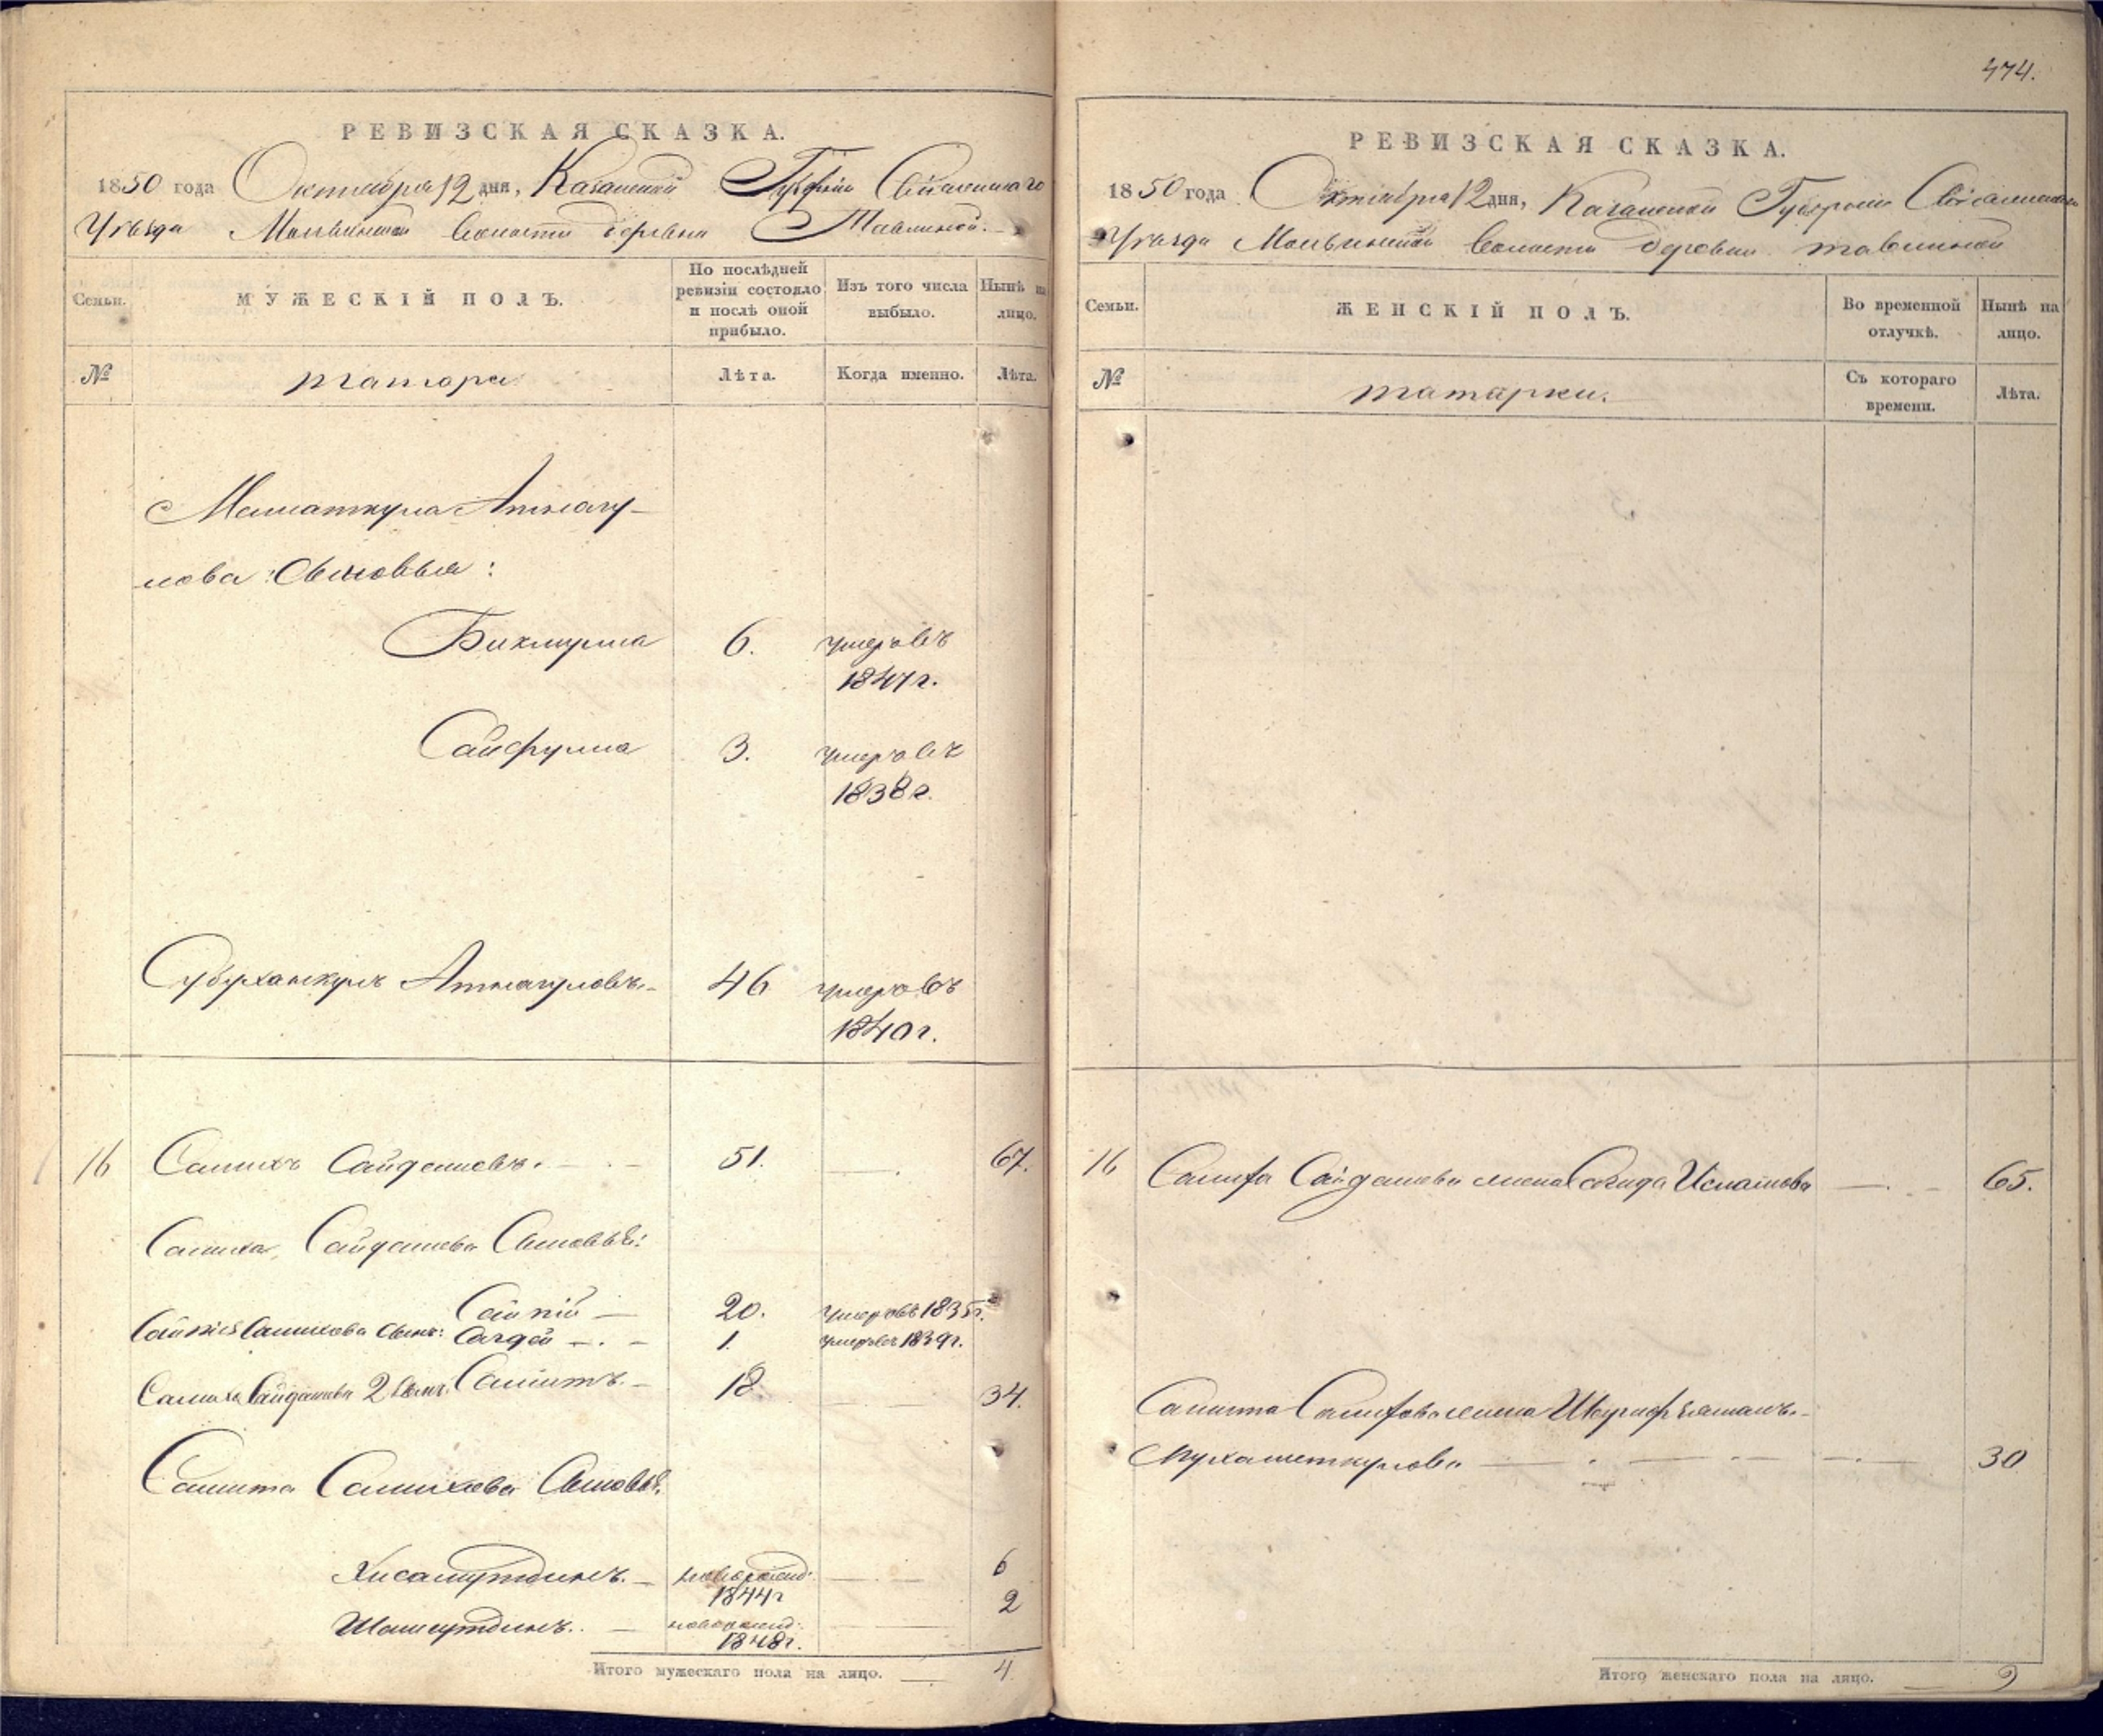 474.
РЕВИЗСКАЯ СКАЗКА.
1850 года Октября 12 дня, Казанской Губернии Свіяжскаго
Уѣзда волости деревни Тавлиной.
Семьи.
МУЖЕСКІЙ ПОЛЪ.
По послѣдней ревизіи состояло и послѣ оной прибыло.
Изъ того числа выбыло.
Нынѣ на лицо.
№
татара
Лѣта.
Когда именно.
Лѣта.
Маматкула Атнагу-
лова Сыновья:
Бикмулла 6. умеръ въ
1847 г.
Сайфулла 3. умеръ въ
1838 г.
Субухански Атнагуловъ 46 умеръ въ
1840 г.
16 Салихъ Сайдашевъ. 51. 67.
Салиха Сайдашева Сыновья:
20. умеръ въ 1835 г.
Салихова сынъ: Сагдей 1. умеръ въ 1839 г.
Салиха Сайдашева 2 сынъ Самитъ 18 34.
Самита Салихова Сыновья.
Хисамутдинъ. новорожд: 6
1844 г
Шамсутдинъ. новорожд: 2
1848 г.
Итого мужескаго пола на лицо. 4
РЕВИЗСКАЯ СКАЗКА.
1850 года Октября 12 дня, Казанской Губерніи
Уѣзда волости деревни Тавлиной
Семьи.
ЖЕНСКІЙ ПОЛЪ.
Во временной отлучкѣ.
Нынѣ на лицо.
№
татарки.
Съ котораго времени.
Лѣта.
16 Салиха Сайдашева жена Сагида 65.
Самита Салихова жена
Мухаметкулова 30
Итого женскаго пола на лицо. 2